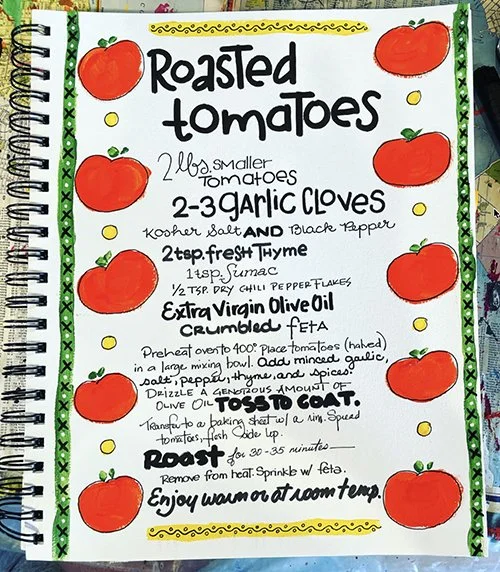 Roasted
tomatoes
2 lbs. smaller
Tomatoes
2-3 garlic Cloves
Kosher Salt AND Black Pepper
2 tsp. fresh Thyme
1 tsp. Sumac
1/2 TSP. DRY CHILI PEPPER FLAKES
Extra Virgin Olive Oil
Crumbled feta
Preheat oven to 400° Place tomatoes (halved)
in a large mixing bowl. Add minced garlic,
salt, pepper, thyme, and spices.
Drizzle a generous amount of
Olive Oil TOSS TO COAT.
Transfer to a baking sheet w/ a rim. Spread
tomatoes, flesh side up.
Roast for 30-35 minutes
Remove from heat. Sprinkle w/ feta.
Enjoy warm or at room temp.